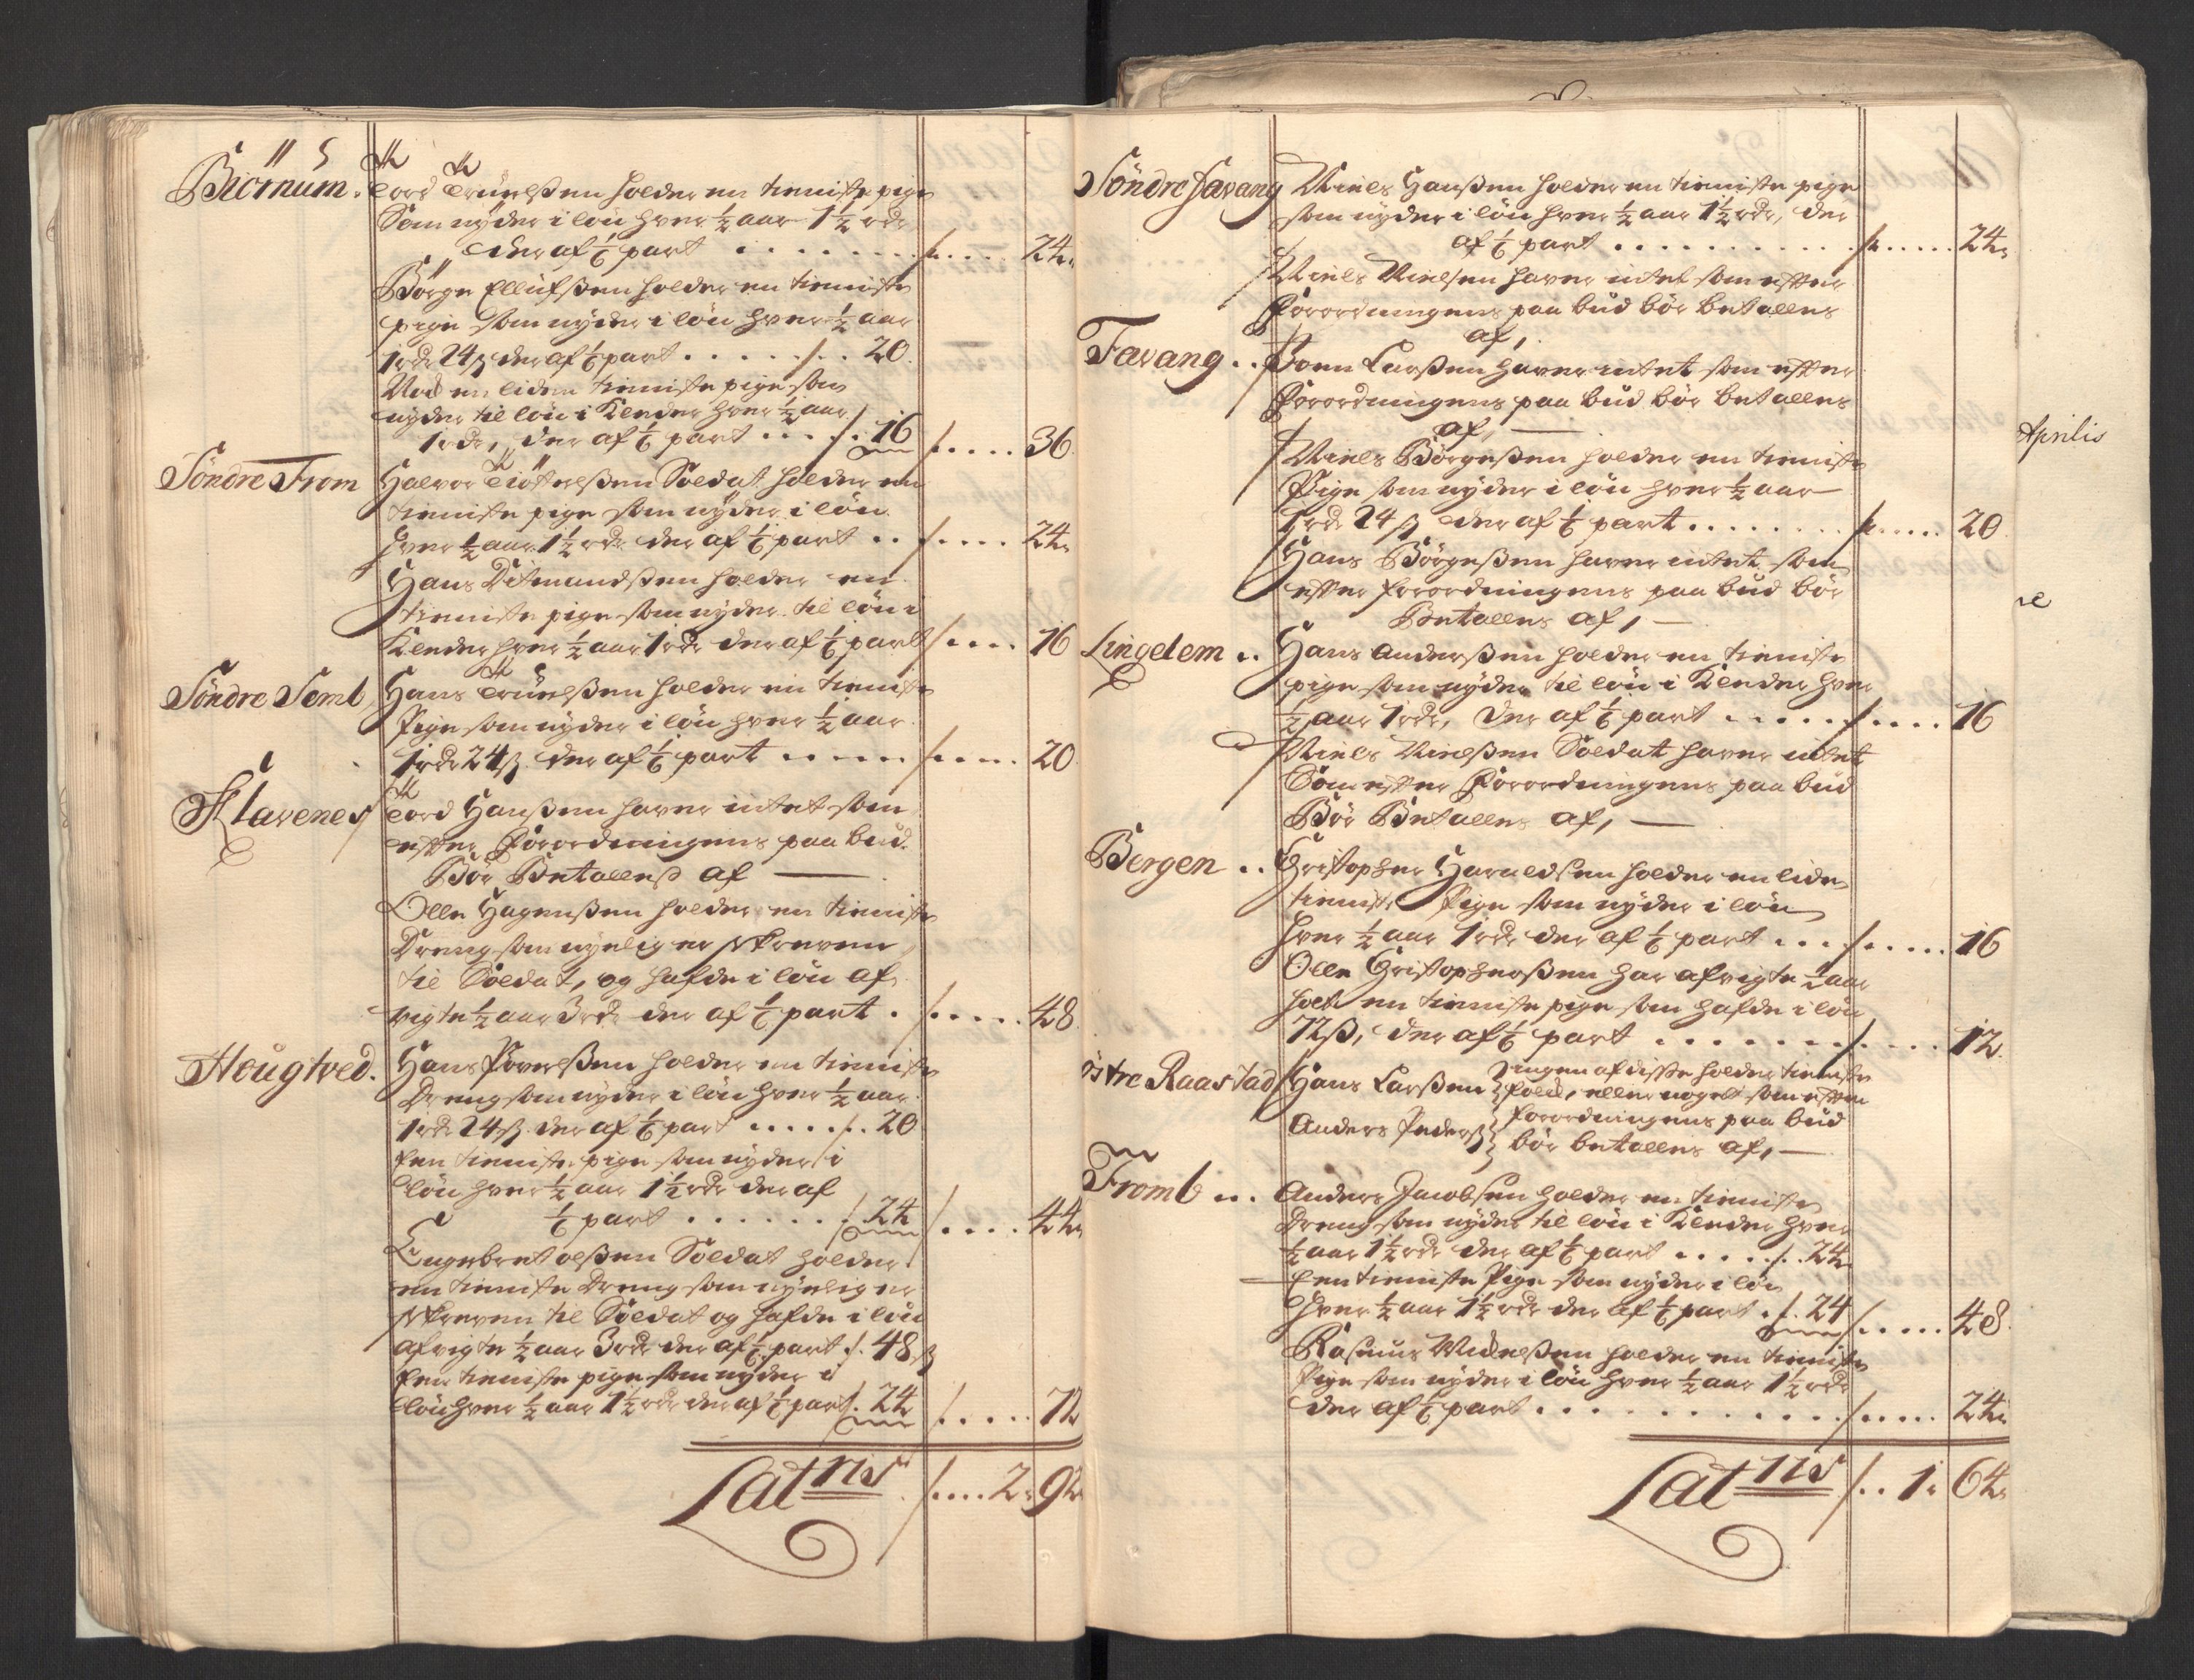 Biörnum. Tord Truelßen holder en tieniste pige
Som nyder i lön hver ½ aar 1½ rdr
der af ⅙ part . . . . . . . /: . . . . 24
Börge Ellufßen holder en tieniste
pige som nyder i lön hver ½ aar
1 rdr 24 ß der af ⅙ part . . . . . /: . . 20
Nock en liden tieniste pige som
nyder til lön i Klæder hver ½ aar
1 rdr, der af ⅙ part . . . . /: . 16 /: . . . . 36
Söndre From Halvor Siöfrelßen Soldat holder en
tieniste pige som nyder i lön
hver ½ aar 1½ rdr der af ⅙ part . . /: . . . . 24
Hans Ditmandßen holder en
tieniste pige som nyder til lön i
Klæder hver ½ aar 1 rdr der af ⅙ part /: . . . . 16
Söndre Semb Hans Truelßen holder en tieniste
Pige som nyder i lön hver ½ aar
1 rdr 24 ß der af ⅙ part . . . . . /: . . . . 20
Klavenes Tord Hanßen haver intet som
effter Forordningens paa bud
Bör Betalles af —
Olle Hagenßen holder en tieniste
Dreng som nyelig er skreven
til Soldat, og hafde i lön af
vigte ½ aar 3 rdr der af ⅙ part . /: . . . . 48
Heugtved. Hans Povelßen holder en tieniste
Dreng som nyder i lön hver ½ aar
1 rdr 24 ß der af ⅙ part . . . . . /: . 20
En tieniste pige som nyder i
lön hver ½ aar 1½ rdr der af
⅙ part . . . . . . /: 24 /: . . . . 44
Engebret olßen Soldat holder
en tieniste Dreng som nyelig er
skreven til Soldat og hafde i lön
afvigte ½ aar 3 rdr der af ⅙ part /: 48 ß
En tieniste pige som nyder i
lön hver ½ aar 1½ rdr der af ⅙ part /: 24 /: . . . . 72
Latris /: . . . . 2 92
Söndre Favang Niels Hanßen holder en tieniste pige
som nyder i lön hver ½ aar 1½ rdr, der
af ⅙ part . . . . . . . . . . . /: . . . . . 24
Niels Nielsen haver intet som effter
Forordningens paa bud bör betalles
af,
Favang . . Soen Larßen haver intet som effter
Forordningens paa bud bör betalles
af, —
Niels Börgeßen holder en tieniste
Pige som nyder i lön hver ½ aar
1 rdr 24 ß der af ⅙ part . . . . . . . . /: . . . . . 20
Hans Börgeßen haver intet som
effter forordningens paa bud bör
Betalles af, —
Lingelem . . Hans Anderßen holder en tieniste
pige som nyder til lön i Klæder hver
½ aar 1 rdr, der af ⅙ part . . . . . /: . . . . 16
Niels Nielßen Soldat haver intet
Som effter Forordningens paa bud
Bör Betalles af, —
Bergen . . Christopher Haraldsen holder en liden
tieniste Pige som nyder i lön
hver ½ aar 1 rdr der af ⅙ part . . . /: . . . . . 16
Olle Christopherßen har afvigte ½ aar
holt en tieniste pige som hafde i lön
72 ß, der af ⅙ part . . . . . . . . /: . . . . 12
östre Raastad Hans Larßen } ingen af disse holder tieniste
folck, eller noget som effter
Anders Pederß } forordningens paa bud
bör betalles af, —
Fromb . . . Anders Jacobsen holder en tieniste
Dreng som nyder til lön i Klæder hver
½ aar 1½ rdr der af ⅙ part . . . . . /: . 24
En tieniste Pige som nyder i lön
hver ½ aar 1½ rdr der af ⅙ part . /: 24 /: . . . . . 48
Rasmus Nielßen holder en tieniste
Pige som nyder i lön hver ½ aar 1½ rdr
der af ⅙ part . . . . . . . . . . . . /: . . . . . 24
Latris /: . . 1 64
Aprilis